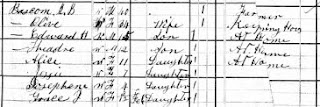 Bascom, E. B. W M 40 1 Farmer
— Olive W F 40 Wife 1 Keeping Hous
— Edward H. W M 15 Son 1 At Home
— Theadre W M 12 Son 1 At Home
— Alice W F 11 Daughter 1 At Home
— Josie W F 7 Daughter
— Josephene W F 4 Daughter
— Grace W F Feb Daughter